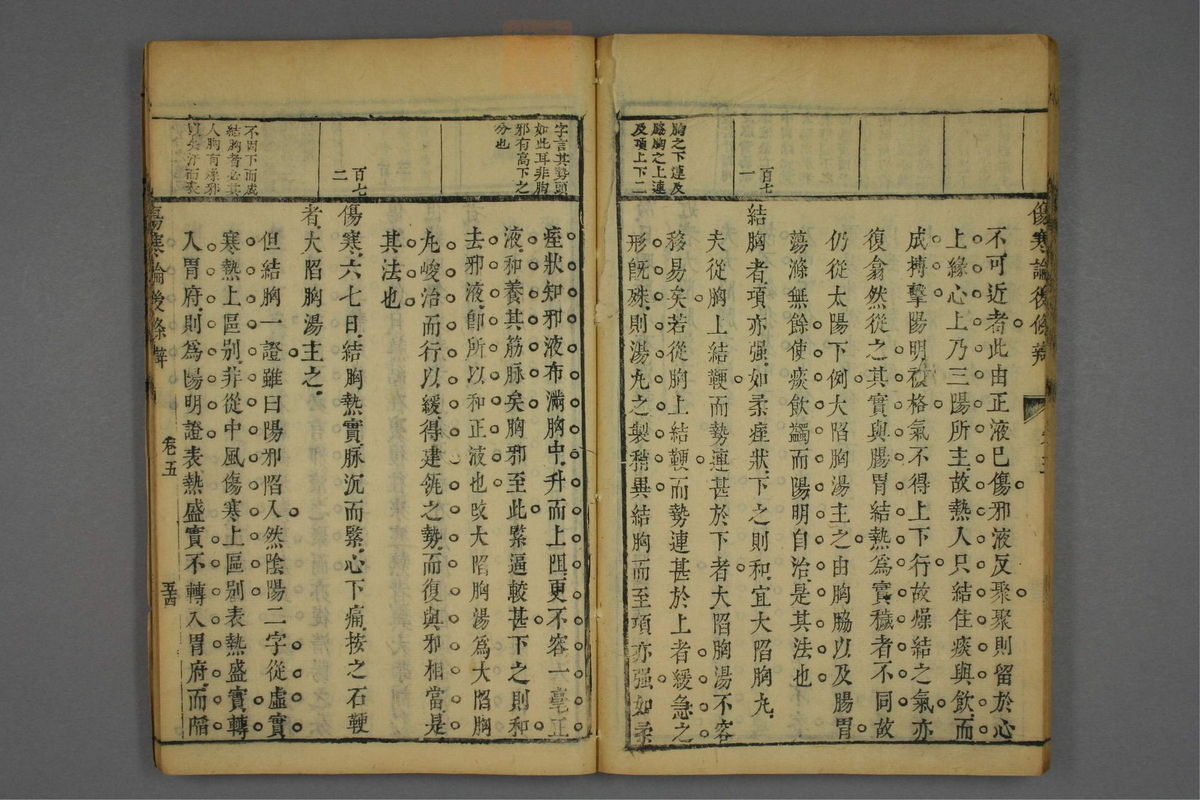 傷寒論後條辨
不可近者此由正液已傷邪液反聚聚則留於心
上緣心上乃三陽所主故熱入只結住痰與飲而
成搏擊陽明被格氣不得上下行故燥結之氣亦
復翕然從之其實與腸胃結熱為實穢者不同故
仍從太陽下例大陷胸湯主之由胸脇以及腸胃
蕩滌無餘使痰飲蠲而陽明自治是其法也
百七一
結胸者項亦强如柔痓狀下之則和宜大陷胸丸
夫從胸上結鞕而勢連甚於下者大陷胸湯不容
移易矣若從胸上結鞕而勢連甚於上者緩急之
形旣殊則湯丸之製稍異結胸而至項亦强如柔
胸之下連及
脇胸之上連
及項上下二
字言其勢頭
如此耳非胸
邪有高下之
分也
痓狀知邪液布滿胸中升而上阻更不容一毫正
液和養其筋脉矣胸邪至此緊逼較甚下之則和
去邪液卽所以和正液也改大陷胸湯為大陷胸
丸峻治而行以緩得建瓴之勢而復與邪相當是
其法也
百七二
傷寒六七日結胸熱實脉沉而緊心下痛按之石鞕
者大陷胸湯主之
但結胸一證雖曰陽邪陷入然陰陽二字從虛實
寒熱上區別非從中風傷寒上區別表熱盛實轉
入胃府則為陽明證表熱盛實不轉入胃府而陷
不因下而成
結胸者必其
人胸有燥邪
以失汗而表
傷寒論後條辨
卷五
五十四